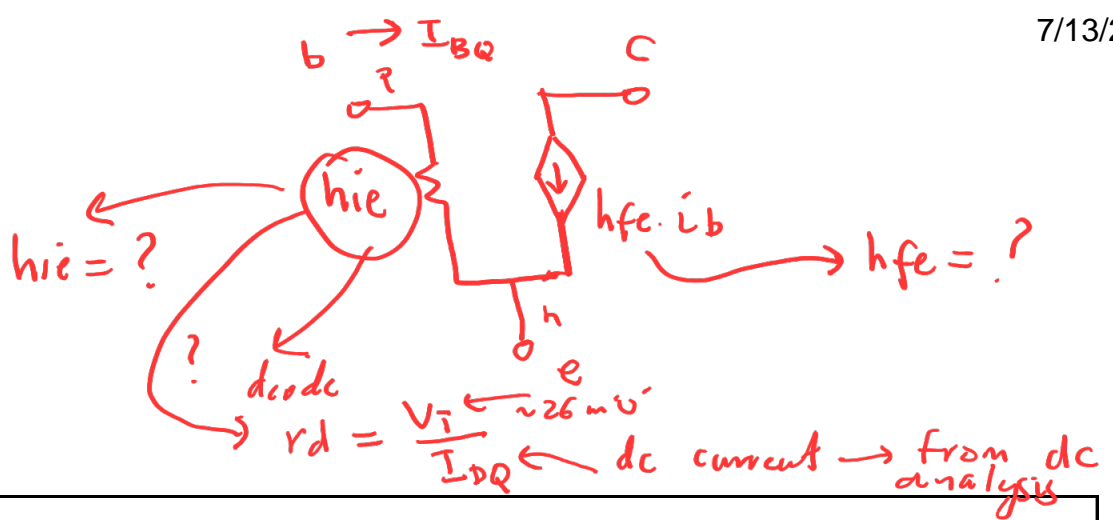 7/13/2
b → I_BQ
C
P
hie
hfe.ib
hie = ?
hfe = ?
n
?
diode
e
rd = V_T / I_DQ
← ~26 mV
← dc current → from dc
analysis